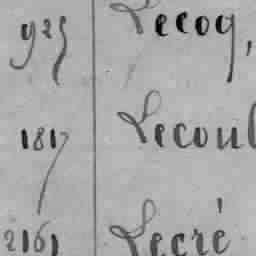 925 Lecoq,
1817 Lecoul
2161 Lecré